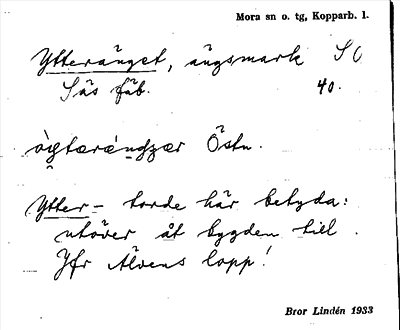 Mora sn o. tg, Kopparb. l.
Ytteränget, ängsmark S
Säs fäb. 40.
Östn.
Ytter- torde här betyda:
utöver åt bygden till.
Jfr Älvens lopp!
Bror Lindén 1933